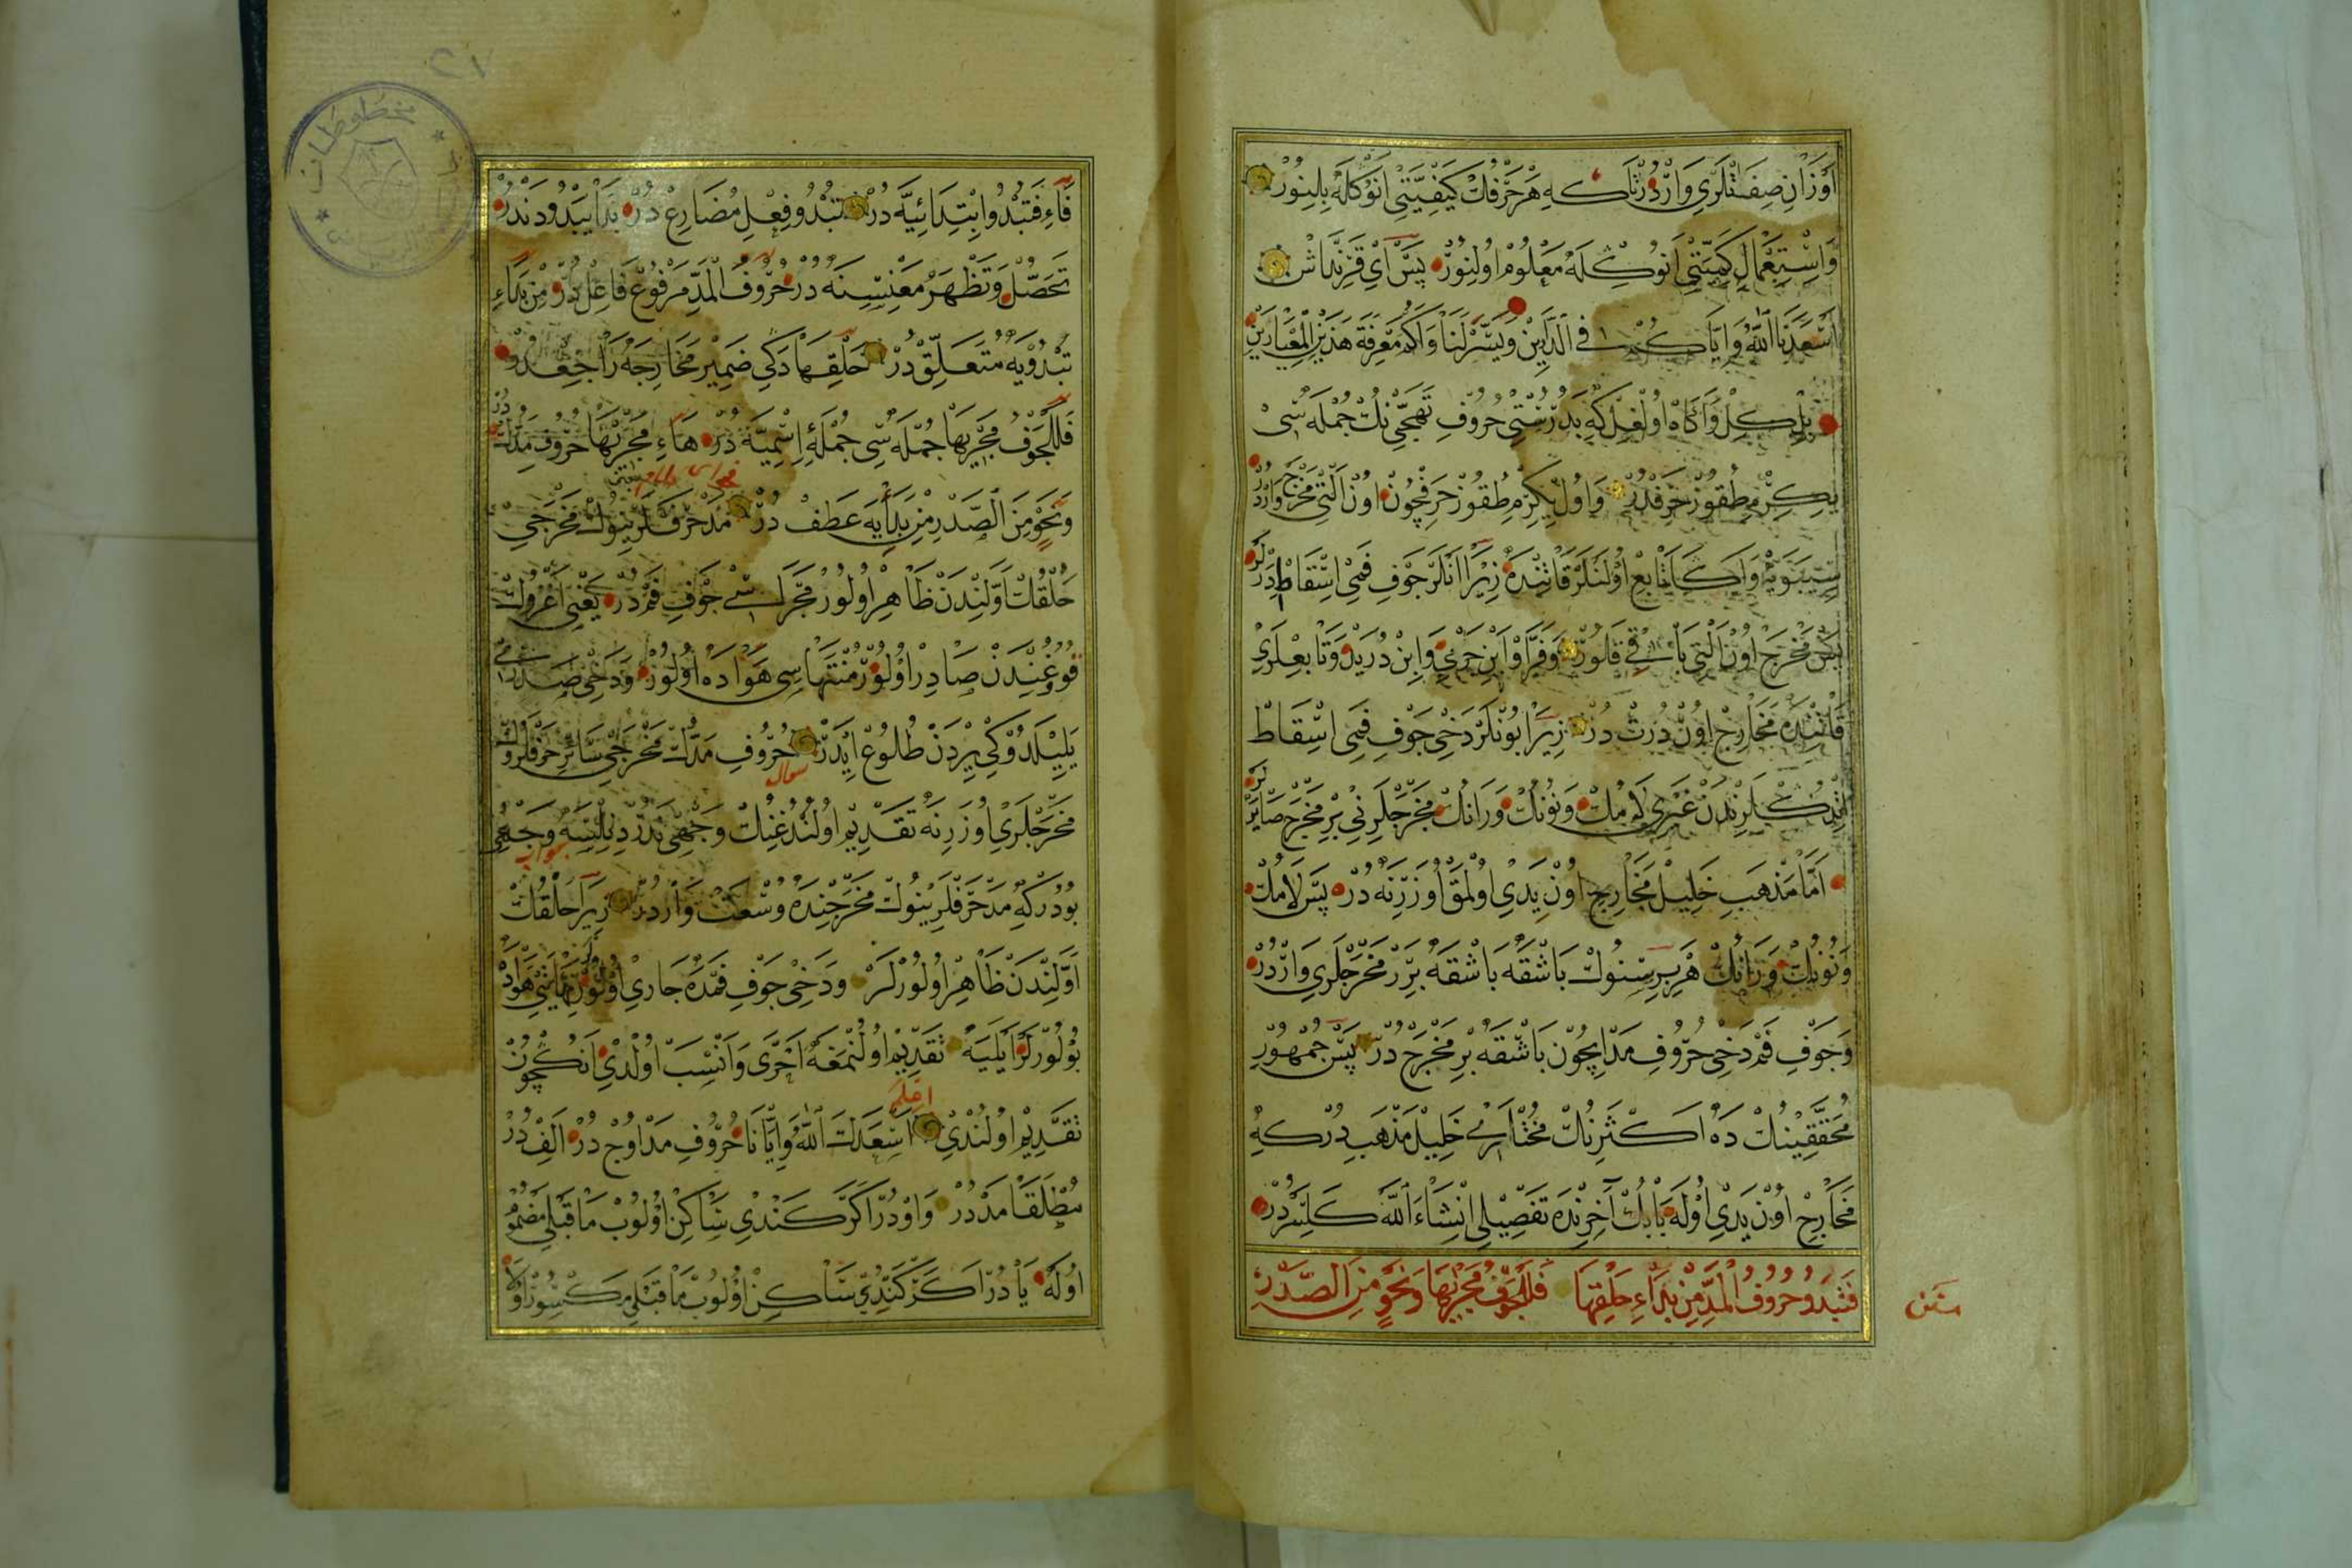 اَوْزَانِ صِفَتْلَرِي وَارْدُرْ تَاكِه هَرْ حَرْفِكْ كَيْفِيَّتِنِي اَنُوكْلَهْ بِلِنُورْ
وَاسْتِعْمَالِ كَمِيَّتِنِي اَنُوكِلَهْ مَعْلُومْ اُولِنُورْ پَسْ اَيْ قَرِنْدَاشْ
اَسْعَدَنَا اللهُ وَاِيَّاكَ فِي الدَّارَيْنِ وَيَسَّرَ لَنَا وَلَكُمْ مَعْرِفَةَ هٰذَيْنِ الْمِعْيَارَيْنِ
بِلْ كِلْ وَاٰكَاهْ اُولْغِلْ كِه بَدُرُسْتِي حُرُوفِ تَهَجِّينُكْ جُمْلَه سِي
يِكِرْمِ طُقُوزْ حَرْفْدُرْ وَاُولْ يِكِرْمِ طُقُوزْ حَرْفْچُونْ اُونْ اَلْتِي مَخْرَجْ وَارْدُرْ
سِيبَوَيْهْ وَاَكَا تَابِعْ اُولَنْلَرْ قَاتِنْدَهْ زِيرَا اَنْلَرْ جَوْفِ فَمِي اِسْقَاطْ اِدَرْلَرْ
پَسْ مَخْرَجْ اُونْ اَلْتِي بَاقِي قَلُورْ وَفَرَّا وَابْنِ جَرْمِي وَابْنِ دُرَيْدْ وَتَابِعْلَرِي
قَاتِنْدَهْ مَخَارِجْ اُونْ دُرْتْ دُرْ زِيرَا بُونْلَرْ دَخِي جَوْفِ فَمِي اِسْقَاطْ
اِتْدُكْلَرِنْدَنْ غَيْرِي لَامُكْ وَنُونُكْ وَرَانُكْ مَخْرَجْلَرِنِي بِرْ مَخْرَجْ صَايَرْلَرْ
اَمَّا مَذْهَبِ خَلِيلْ مَخَارِجِ اُونْ يَدِي اُولْمَقْ اُوزَرِنَهْ دُرْ پَسْ لَامُكْ
وَنُونُكْ وَرَانُكْ هَرْ بِرِسْنُوكْ بَاشْقَهْ بَاشْقَهْ بِرَرْ مَخْرَجْلَرِي وَارْدُرْ
وَجَوْفِ فَمْ دَخِي حُرُوفِ مَدّ اِيچُونْ بَاشْقَهْ بِرْ مَخْرَجْ دُرْ پَسْ جُمْهُورْ
مُحَقِّقِينُكْ دَهْ اَكْثَرِنُكْ مُخْتَارِي خَلِيلْ مَذْهَبِدُرْ كِهْ
مَخَارِجْ اُونْ يَدِي اُولَهْ بَابُكْ آخِرِنْدَهْ تَفْصِيلِي اِنْشَاءَ اللهُ كَلِسَرْدُرْ
فَتَبْدُو حُرُوفُ الْمَدِّ مِنْ بَدْءِ حَلْقِهَا فَلِلْجَوْفِ مَجْرِيهَا وَنَحْوٍ مِنَ الصَّدْرِ
متن
فَاءِ فَتَبْدُو اِبْتِدَائِيَّه دُرْ تَبْدُو فِعْلِ مُضَارِعْ دُرْ بَدَا يَبْدُو دَنْدُرْ
تَحَصَّلَ وَتَظْهَرْ مَعْنِسِنَه دُرْ حُرُوفُ الْمَدِّ مَرْفُوعْ فَاعِلْ دُرْ مِنْ بَدْءِ
تَبْدُويَه مُتَعَلِّقْ دُرْ حَلْقِهَادَكِي ضَمِيرْ مَخَارِجَه رَاجِعْدُرْ
فَلِلْجَوْفِ مَجْرِيهَا جُمْلَه سِي جُمْلَهِٔ اِسْمِيَّه دُرْ هَاءِ مَجْرِيهَا حُرُوفِ مَدُّكْ دُرْ
وَنَحْوٍ مِنَ الصَّدْرِ مِنْ بَدْأِيَه عَطِفْ دُرْ مَدْ حَرْفْلَرِينُوكْ مَخْرَجِي
حَلْقُكْ اَوَّلِنْدَنْ ظَاهِرْ اُولُورْ مَجْرَاسِي جَوْفِ فَمْ دُرْ يَعْنِي اَغْزُوكْ
قُووُغِنْدَنْ صَادِرْ اُولُورْ مُنْتَهَاسِي هَوَادَه اُولُورْ وَدَخِي صَدْرِي
يَلِيِيلَدُوكِي يِرْدَنْ طُلُوعْ اِيدَرْ حُرُوفِ مَدُّكْ مَخْرَجِي سَائِرْ حَرْفْلَرُوكْ
سؤال
مَخْرَجْلَرِي اُوزَرِنَه تَقْدِيمْ اُولُنْدُغِنُكْ وَجْهِي نَدُرْ دِيلِنِسَه وَجْهِي
جواب
بُودُرْ كِه مَدْ حَرْفْلَرِينُوكْ مَخْرَجِنْدَه وُسْعَتْ وَارْدُرْ زِيرَا حَلْقُكْ
اَوَّلِنْدَنْ ظَاهِرْ اُولُورْلَرْ وَدَخِي جَوْفِ فَمْدَه جَارِي اُولُورْلَرْ نِهَايَتِي هَوَادَه
بُولُورْلَرْ اَيْلَيَه تَقْدِيمْ اُولُنْمَغَه اَحْرَى وَاَنْسَبْ اُولْدِي اَنُكْچُونْ
تَقْدِيمْ اُولُنْدِي اَسْعَدَكَ اللهُ وَاِيَّانَا حُرُوفِ مَدْ اُوچْ دُرْ اَلِفْ دُرْ
اعلم
مُطْلَقًا مَدْ دُرْ وَاوْ دُرْ اَكَرْ كَنْدِي سَاكِنْ اُولُوبْ مَا قَبْلِي مَضْمُومْ
اُولَه يَا دُرْ اَكَرْ كَنْدِي سَاكِنْ اُولُوبْ مَا قَبْلِي مَكْسُورْ اُولَا
مخطوطات